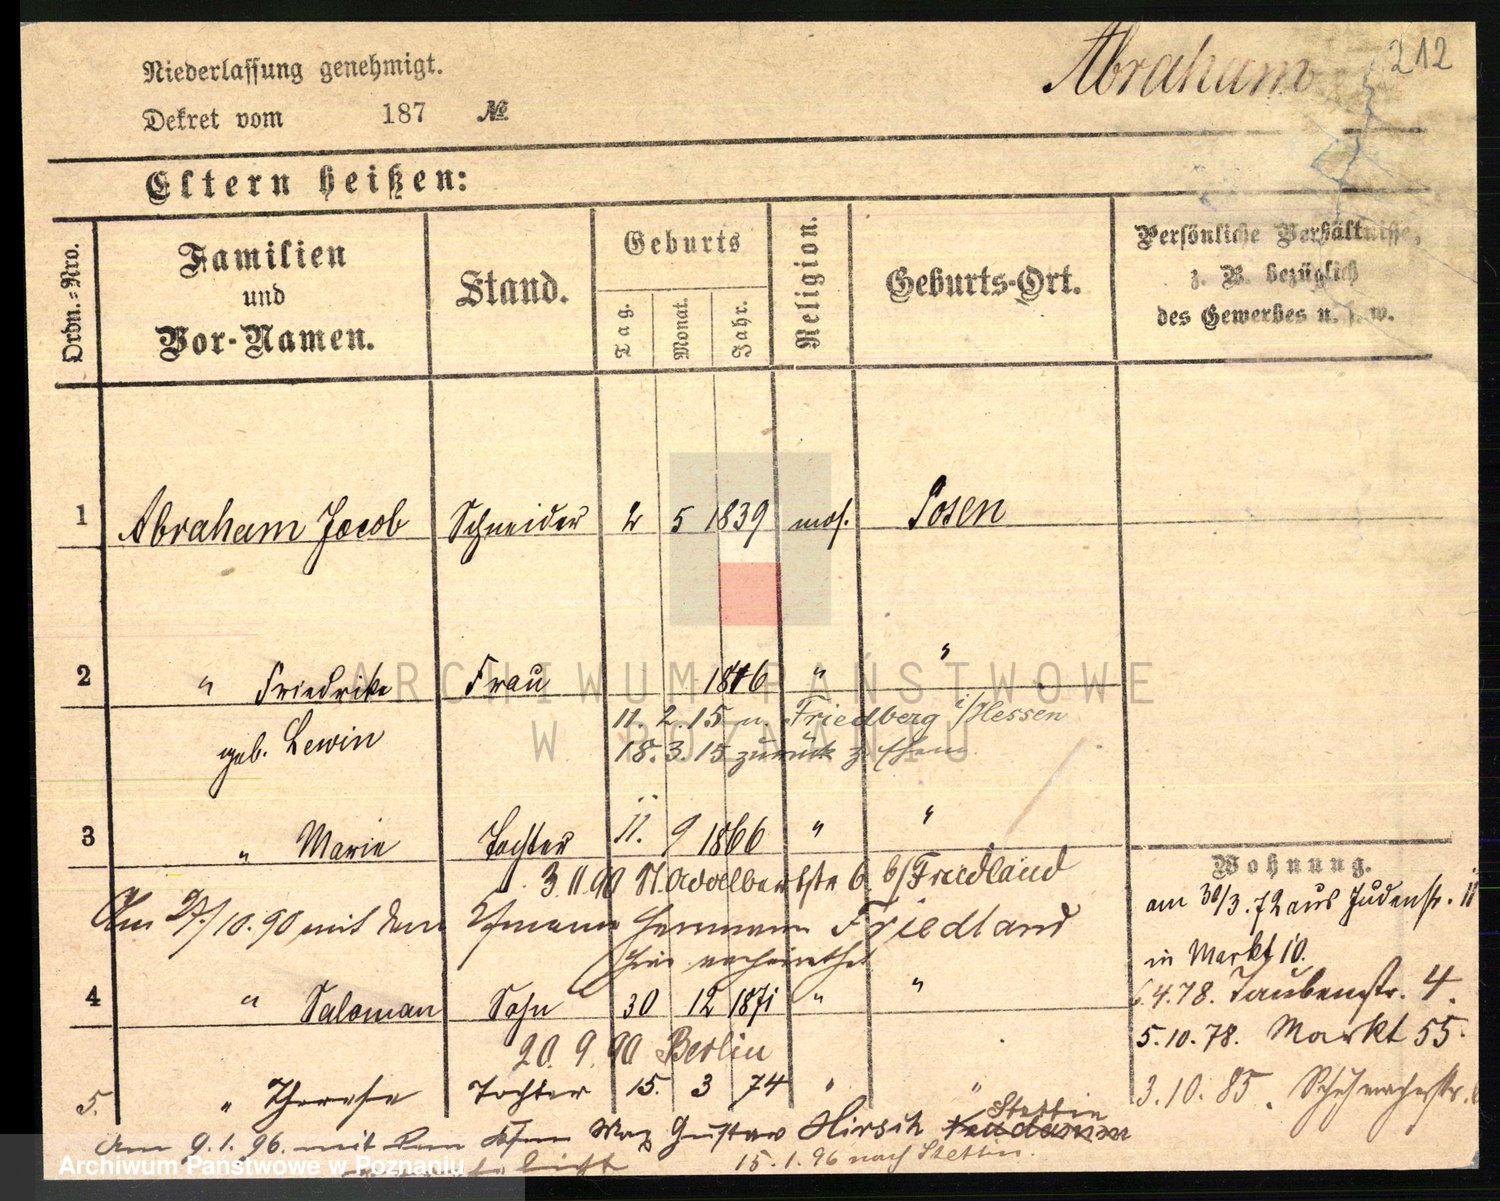 Niederlassung genehmigt.
Abraham
212
Dekret vom 187 №
Eltern heißen:
Ordn.-Nro.
Familien und Vor-Namen.
Stand.
Geburts
Tag.
Monat.
Jahr.
Religion.
Geburts-Ort.
Persönliche Verhältnisse,
z. B. bezüglich
des Gewerbes u. s. w.
1 Abraham Jacob Schneider 2 5 1839 mos. Posen
2 " Friedrike Frau 1846 " "
geb. Lewin
11. 2. 15 n. Friedberg i/Hessen
18. 3. 15 zurück
3 " Marie Tochter 11. 9 1866 " "
3.11.90 St. Adalbertstr 6 b/Friedland
Am 27/10.90 mit dem Kfmann Hermann Friedland
hier verheirathet
4 " Saloman Sohn 30 12 1871 " "
20. 9. 90 Berlin
5. " Therese Tochter 15. 3 74 " "
Am 9.1.96. mit dem Kfm Max Gustav Hirsch Stettin
15.1.96 nach Stettin.
Wohnung.
am 30/3.72 aus Judenstr. 11
in Markt 10.
6.4.78. Taubenstr. 4.
5.10.78. Markt 55.
3.10.85. Schuhmacherstr.
ARCHIWUM PAŃSTWOWE
W POZNANIU
Archiwum Państwowe w Poznaniu